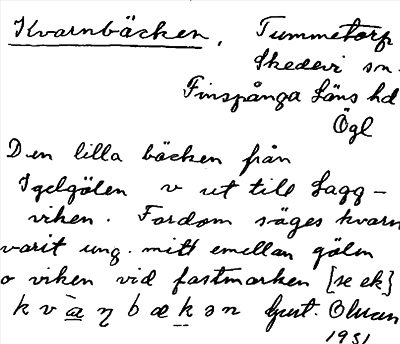 Kvarnbäcken, Tummetorp
Skedevi sn.
Finspånga Läns hd
Ögl
Den lilla bäcken från
Igelgölen v ut till Lagg-
viken. Fordom säges kvarn
varit ung. mitt emellan gölen
o viken vid fastmarken [se ek]
kvàɳbækən Gust. Olman
1931